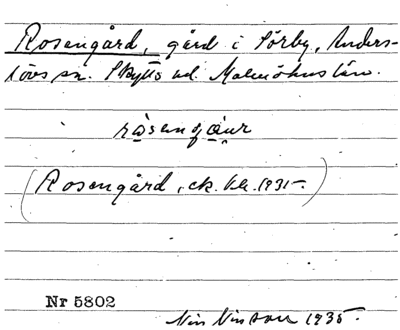 Rosengård, gård i Sörby, Anders-
lövs sn. Skytts hd. Malmöhus län.
(Rosengård, ek. kk. 1931-)
Nr 5802
Nils Nilsson 1935.